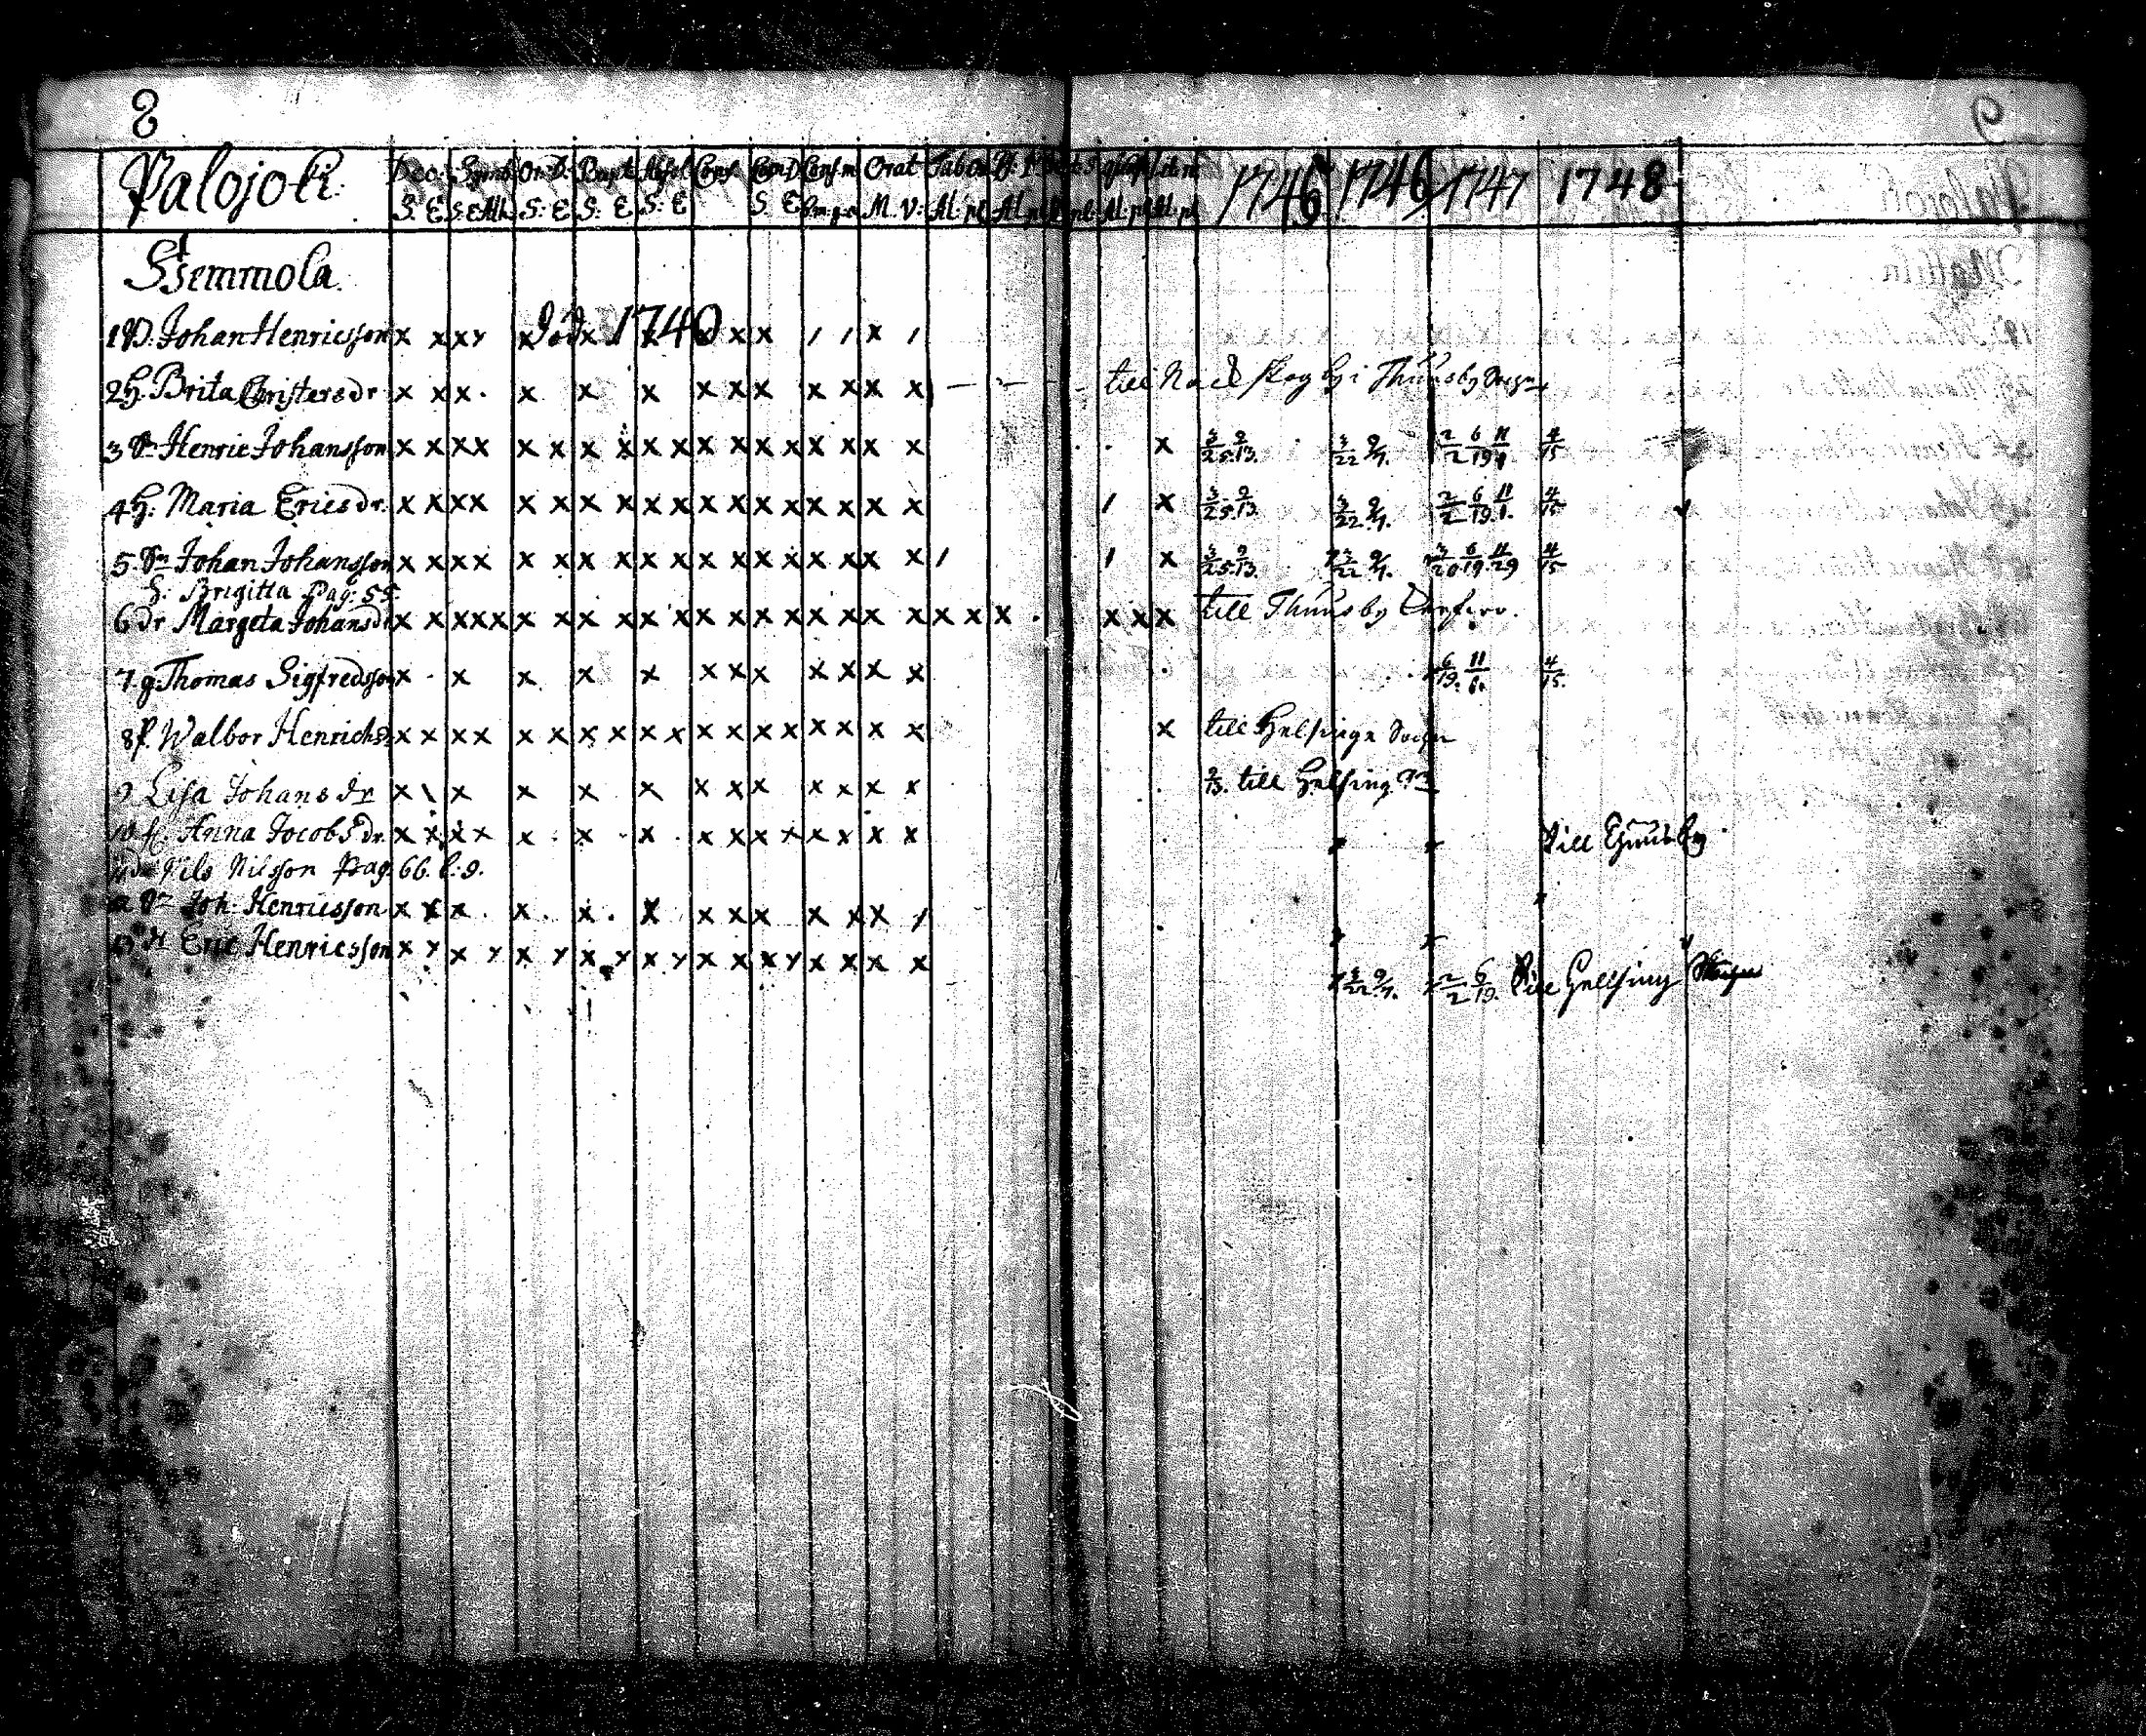 8 9
Palojoki. Dec: Symb. Or.D. Bapt. Absol. Conf. Cœn.D Conf.m. Orat Tab.œ 1745 1746 1747 1748
S. E. S. E Ath. S: E S: E S: E S E M. V: Al. pl. Al. pl. Al. pl. Al. pl.
Stemmola.
1 Johan Henricsson x x x x x Död x 1740 x x x / / x /
2 H. Brita Christersdr x x x . x x x x x x x x x x till Thuusby
3 Sn Henric Johansson x x x x x x x x x x x x x x x x x x x 3/25. 9/13. 3/22 9/7. 2/2 6/19 11/1 4/15
4 H. Maria Ericsdr. x x x x x x x x x x x x x x x x x x / x 3/25. 9/13. 3/22. 9/7. 2/2 6/19. 11/1. 4/15
5. Sn Johan Johansson x x x x x x x x x x x x x x x x x x / / x 3/25. 9/13. 3/22 9/7. 6/19. 11/29 4/15
H. Brigitta Pag: 55
6 dr Margeta Johansdr x x x x x x x x x x x x x x x x x x x x x x x x x till Thuusby
7. Thomas Sigfredsson x . x x x x x x x x x x x 6/19. 11/6. 4/15.
8 p. Walbor Henrichsd x x x x x x x x x x x x x x x x x x x till Helsinge Sochn
9 Lisa Johansdr x \ x x x x x x x x x x x till Helsing
10 Anna Jocobsdr. x x x x x . x . x . x x x x x x x x till Thuusby
Nils Nilsson Pag. 66. l. 9.
Sn Joh Henricsson x x x . x . x . x x x x x x x /
Eric Henricsson x x x x x x x x x x x x x x x x x x 3/22 9/7. 2/2 6/19. till Helsing